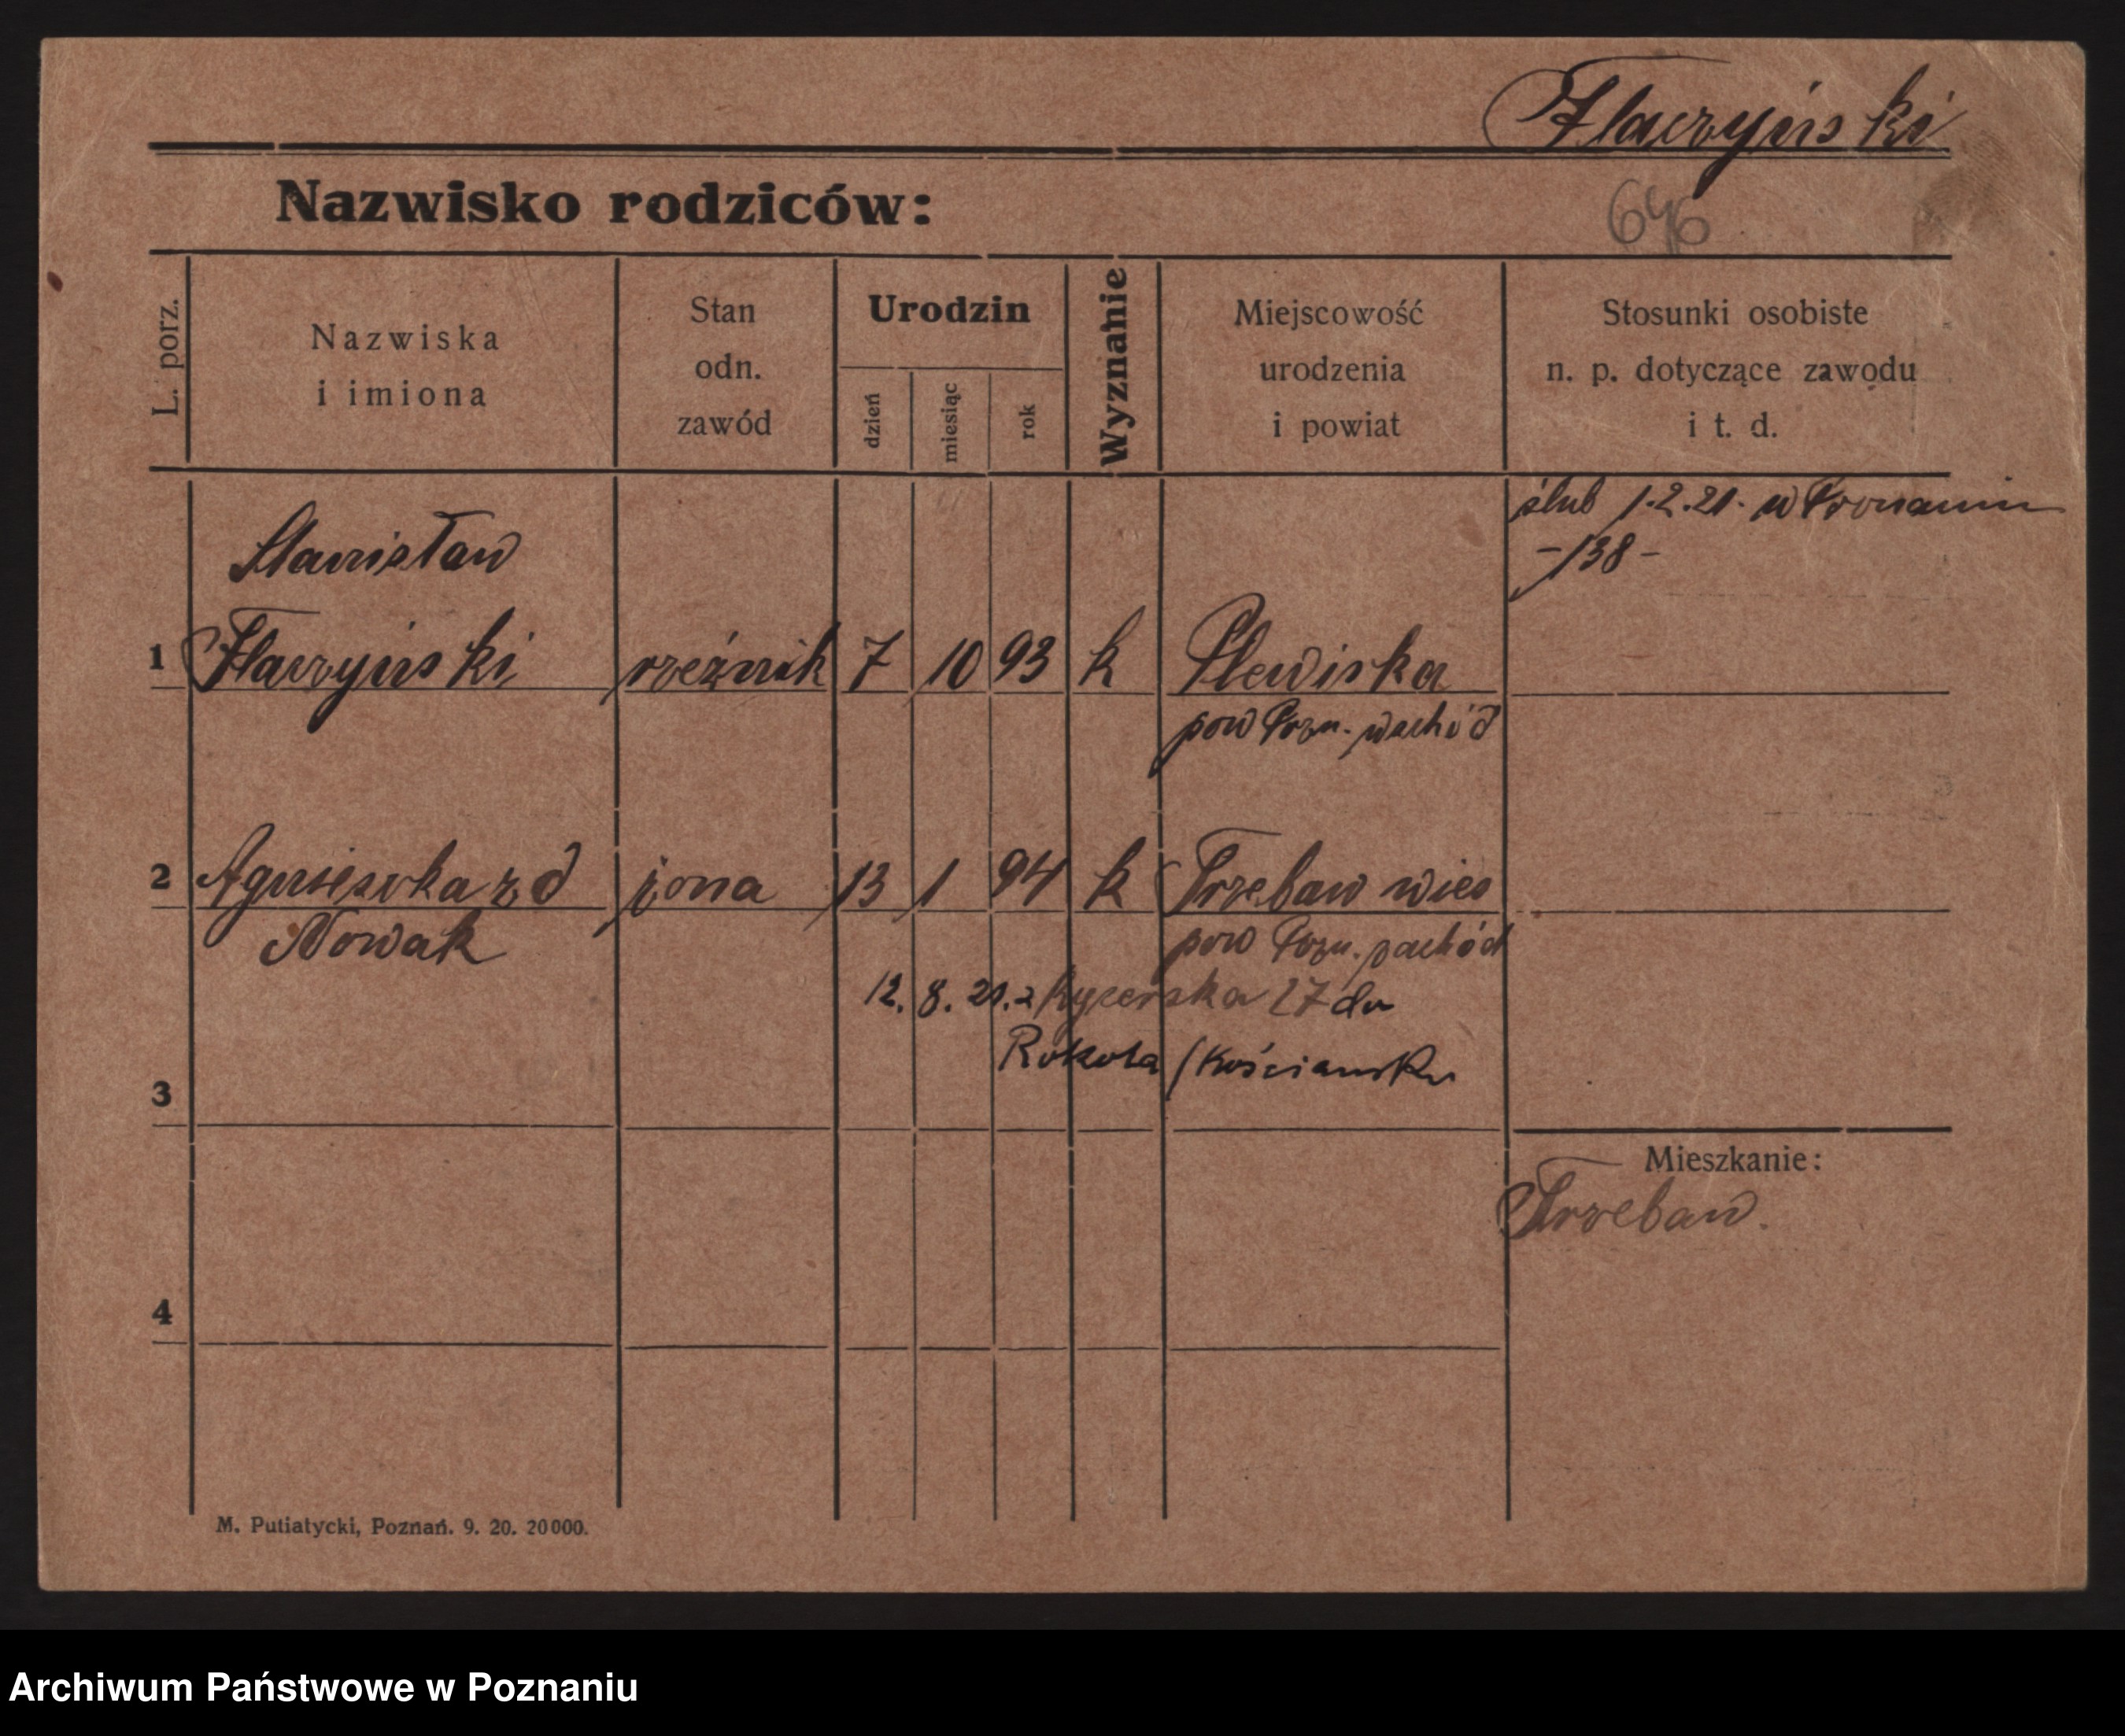 Flaczyński
Nazwisko rodziców:
646
L. porz.
Nazwiska
i imiona
Stan
odn.
zawód
Urodzin
dzień
miesiąc
rok
Wyznanie
Miejscowość
urodzenia
i powiat
Stosunki osobiste
n. p. dotyczące zawodu
i t. d.
ślub 1.2.21. w Poznaniu
-138-
Stanisław
1 Flaczyński rzeźnik 7 10 93 k Plewiska
pow Pozn. wschód
2 Agnieszka z d żona 13 1 94 k Trzebaw wieś
Nowak pow Pozn. zachód
12. 8. 21. z Rycerska 27 do
(Kościansku
3
Mieszkanie:
Trzebaw.
4
M. Putiatycki, Poznań. 9. 20. 20000.
Archiwum Państwowe w Poznaniu